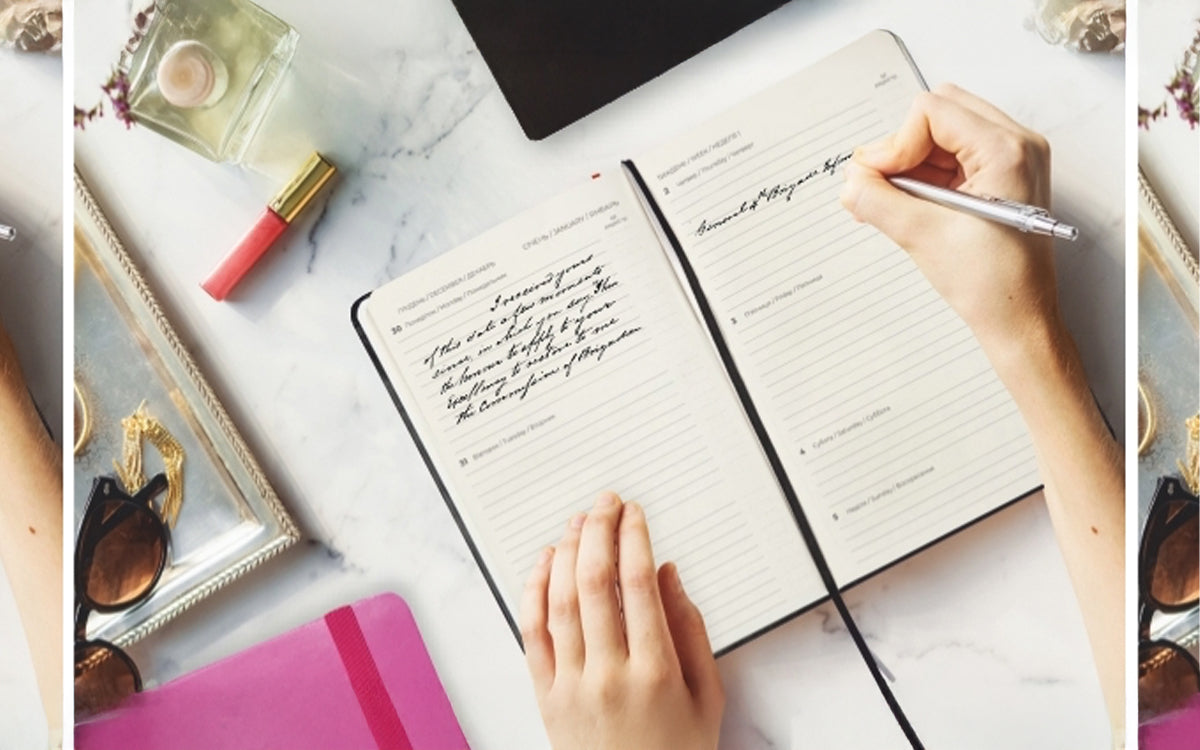 ГРУДЕНЬ / DECEMBER / ДЕКАБРЬ
СІЧЕНЬ / JANUARY / ЯНВАРЬ
30 Понеділок / Monday / Понедельник
I received yours
of this date a few moments
since, in which you say
the honour to apply to your
Excellency to restore to me
the Commission of Brigadier
31 Вівторок / Tuesday / Вторник
ТИЖДЕНЬ / WEEK / НЕДЕЛЯ 1
2 Четвер / Thursday / Четверг
General 4th Brigade
3 П'ятниця / Friday / Пятница
4 Субота / Saturday / Суббота
5 Неділя / Sunday / Воскресенье